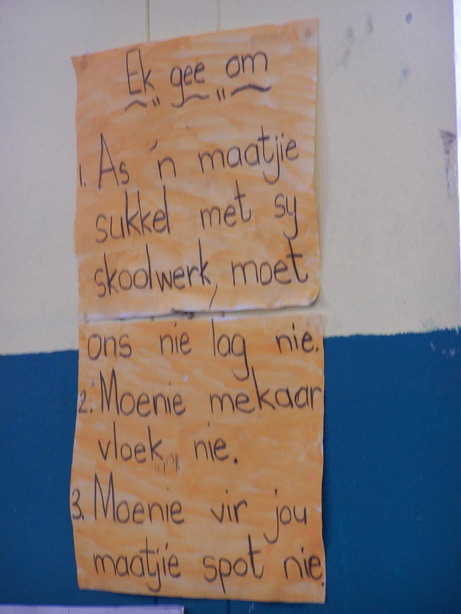 Ek gee om
1. As 'n maatjie
sukkel met sy
skoolwerk, moet
ons nie lag nie.
2. Moenie mekaar
vloek nie.
3. Moenie vir jou
maatjie spot nie.